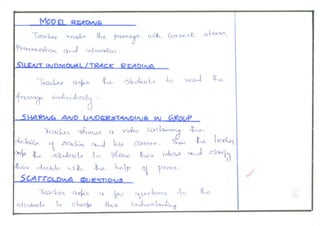 MODEL READING
Teacher reads the passage with correct stress,
Pronunciation and intonation.
SILENT INDIVIDUAL / TRACK READING
Teacher asks the students to read the
passage individually.
SHARING AND UNDERSTANDING IN GROUP
Teacher shows a video containing the
details of Sachin and his career. Then the teacher
asks the students to share their ideas and clarify
their doubts with the help of peers.
SCAFFOLDING QUESTIONS
Teacher asks a few questions to the
students to check their understanding